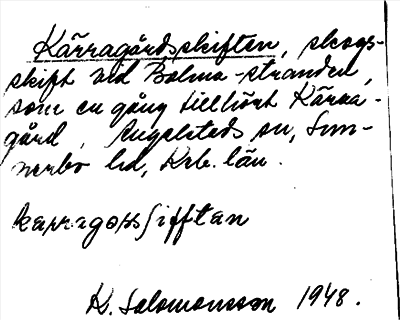 Kärragårdsskiften, skogs-
skift vid Bolmastranden,
som en gång tillhört Kärra-
gård, Angelstads sn, Sun-
nerbo hd, Krb. län.
karragossifftan
K. Salomonsson 1948.